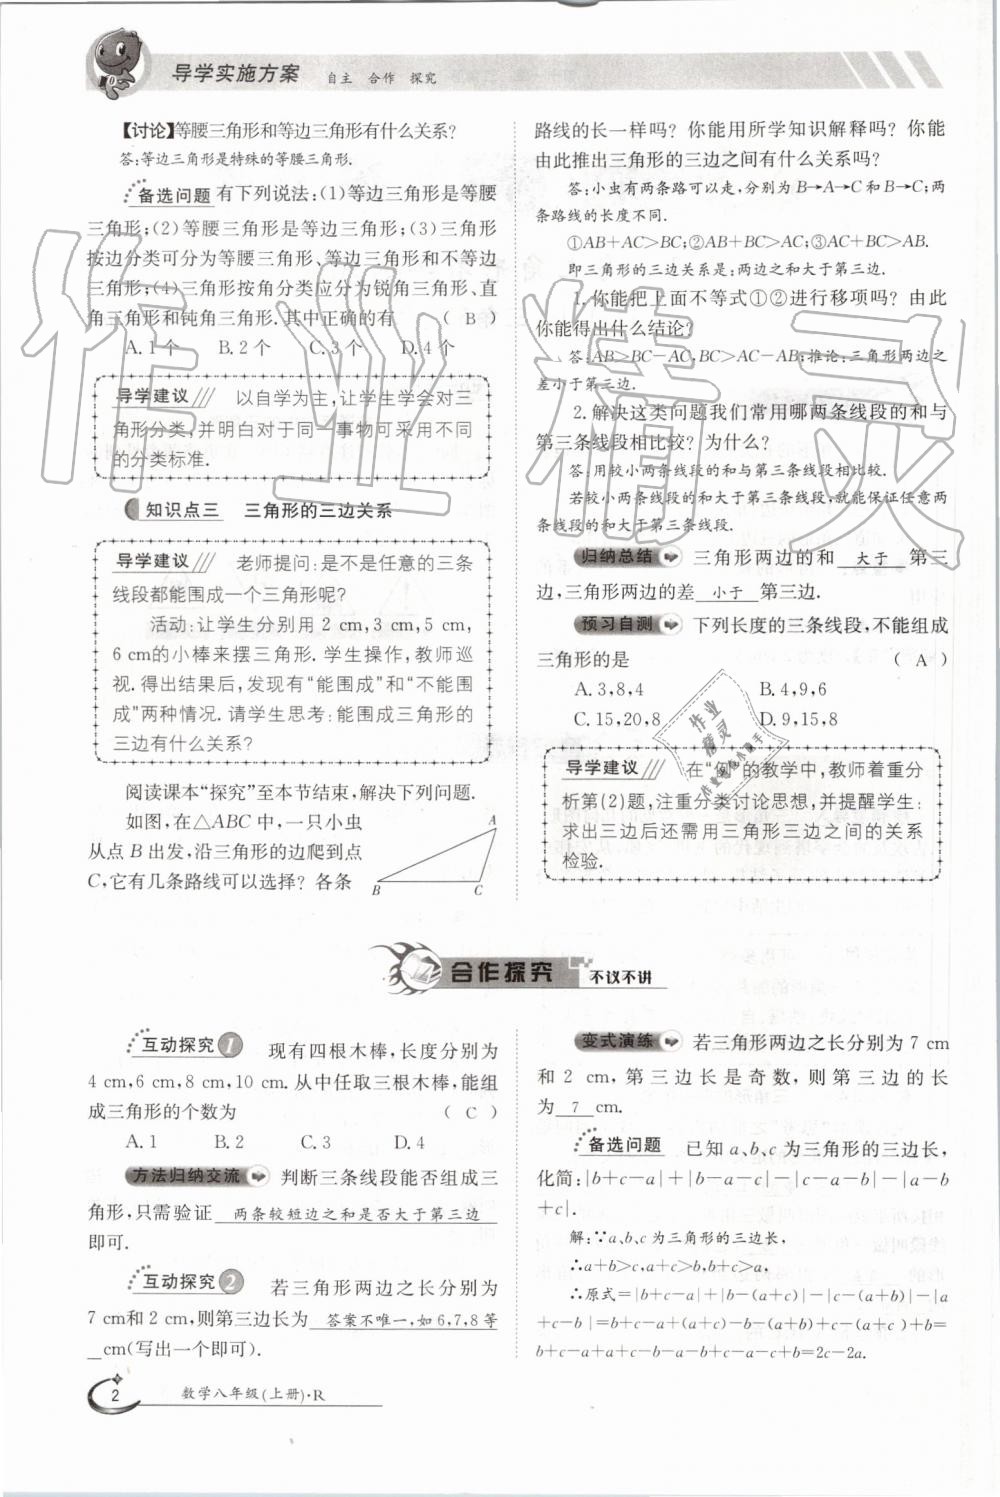 导学实施方案 自主 合作 探究
【讨论】等腰三角形和等边三角形有什么关系?
答:等边三角形是特殊的等腰三角形.
备选问题 有下列说法:(1)等边三角形是等腰
三角形;(2)等腰三角形是等边三角形;(3)三角形
按边分类可分为等腰三角形、等边三角形和不等边
三角形;(4)三角形按角分类应分为锐角三角形、直
角三角形和钝角三角形.其中正确的有 ( B )
A.1个 B.2个 C.3个 D.4个
导学建议 以自学为主,让学生学会对三
角形分类,并明白对于同一事物可采用不同
的分类标准.
知识点三 三角形的三边关系
导学建议 老师提问:是不是任意的三条
线段都能围成一个三角形呢?
活动:让学生分别用 2 cm,3 cm,5 cm,
6 cm的小棒来摆三角形. 学生操作,教师巡
视.得出结果后,发现有“能围成”和“不能围
成”两种情况.请学生思考:能围成三角形的
三边有什么关系?
阅读课本“探究”至本节结束,解决下列问题.
如图,在△ABC中,一只小虫
从点B出发,沿三角形的边爬到点
C,它有几条路线可以选择? 各条
A
B C
路线的长一样吗? 你能用所学知识解释吗? 你能
由此推出三角形的三边之间有什么关系吗?
答:小虫有两条路可以走,分别为B→A→C和B→C;两
条路线的长度不同.
①AB+AC>BC;②AB+BC>AC;③AC+BC>AB.
即三角形的三边关系是:两边之和大于第三边.
1.你能把上面不等式①②进行移项吗? 由此
你能得出什么结论?
答:AB>BC-AC,BC>AC-AB;推论,三角形两边之
差小于第三边.
2.解决这类问题我们常用哪两条线段的和与
第三条线段相比较? 为什么?
答:用较小两条线段的和与第三条线段相比较.
若较小两条线段的和大于第三条线段,就能保证任意两
条线段的和大于第三条线段.
归纳总结 三角形两边的和 大于 第三
边,三角形两边的差 小于 第三边.
预习自测 下列长度的三条线段,不能组成
三角形的是 ( A )
A.3,8,4 B.4,9,6
C.15,20,8 D.9,15,8
导学建议 在“例”的教学中,教师着重分
析第(2)题,注重分类讨论思想,并提醒学生:
求出三边后还需用三角形三边之间的关系
检验.
合作探究 不议不讲
互动探究1 现有四根木棒,长度分别为
4 cm,6 cm,8 cm,10 cm.从中任取三根木棒,能组
成三角形的个数为 ( C )
A.1 B.2 C.3 D.4
方法归纳交流 判断三条线段能否组成三
角形,只需验证 两条较短边之和是否大于第三边
即可.
互动探究2 若三角形两边之长分别为
7 cm和2 cm,则第三边长为 答案不唯一,如6,7,8等
cm(写出一个即可).
变式演练 若三角形两边之长分别为 7 cm
和 2 cm,第三边长是奇数,则第三边的长
为 7 cm.
备选问题 已知a、b、c为三角形的三边长,
化简:|b+c-a|+|b-a-c|-|c-a-b|-|a-b
+c|.
解:∵a、b、c为三角形的三边长,
∴a+b>c,a+c>b,b+c>a,
∴原式=|b+c-a|+|b-(a+c)|-|c-(a+b)|-|a
+c-b|=b+c-a+(a+c)-b-(a+b)+c-(a+c)+b=
b+c-a+a+c-b-a-b+c-a-c+b=2c-2a.
2 数学八年级(上册)·R
作业精灵
作业精灵